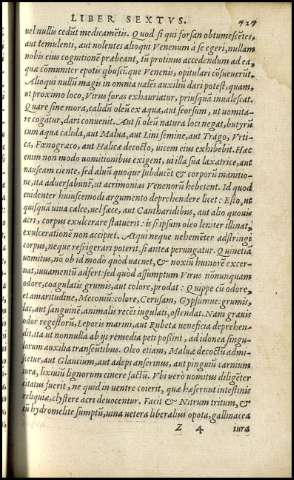 LIBER SEXTVS. 727
vel nullis cedūt medicamētis. Quod si qui forsan obtumescētes,
aut temulenti, aut nolentes alioqui Venenum à se egeri, nullam
nobis eius cognitionē præbeant, iis protinus accedendum ad ea,
quæ cōmuniter epotis quibusciūque Venenis, opitulari cōsueuerūt.
Alioqui nulli magis in omnia vales auxilii dari potest, quàm,
vt proximo loco, Virus foras exhauriatur, priusquā inualescat.
Quare sine mora, calidū oleū ex aqua, aut seorsum, vt vomitare
cogatur, dari conuenit. Aut si olei natura loci negat, butyrū
cum aqua calida, aut Malua, aut Lini semine, aut Trago, Vrtica,
Fœnograco, aut Halicæ decocto, vicem eius exhibebit. Hæc
enim non modo vomitionibus exigent, vt illa sua laxatrice, aut
nauseam ciente, sed aluū quoque subducēt & corporis munitione,
ita aduersabunt, vt acrimonias Venenorū hebetent. Id quod
euidenter huiuscemodi argumento deprehendere licet: Esto, vt
quisquā viua calce, vel face, aut Cantharidibus, aut alio quouis
acri, corpus exulcerare statuerit: is si ipsum oleo leniter illinat,
exulceratione non accipet. Atqui neque vehemēter adstringi
corpus, neque refrigerari poterit, si antea perungatur. Quinetiā
vomitus, nō ob id modo quòd vacuet, & noxiū humorē excernat,
iuuamentū adfert: sed quòd assumptum Virus nōnunquam
odore, coagulatis grumis, aut colore, prodat: Quippe cū odore,
et amaritudine, Meconiū: colore, Cerussam, Gypsumue: grumis,
lac, aut sanguinē, animalis recēs iugulati, ostendat. Nam grauis
odor regestorū, Leporis marini, aut Rubetæ veneficia deprehendit,
ita vt nonnulla ab iis remedia peti possint, ad idonea singulorum
auxilia transeuntibus. Oleo etiam, Maluæ decoctū admiscetur,
aut Glaucium, aut adeps anserinus, aut pinguiū carnium
iura, lixiuiū lignorum cinere factū. Vbi verò vomitus diligēter
status fuerit, ne quid in ventre coierit, quæ hæserunt intestinis
reliquiæ, clystere acri deuocentur. Facit & Nitrum tritum, &
in hydromelite sumptū, vina vetera liberalius epota, gallinacea
Z 4 iura